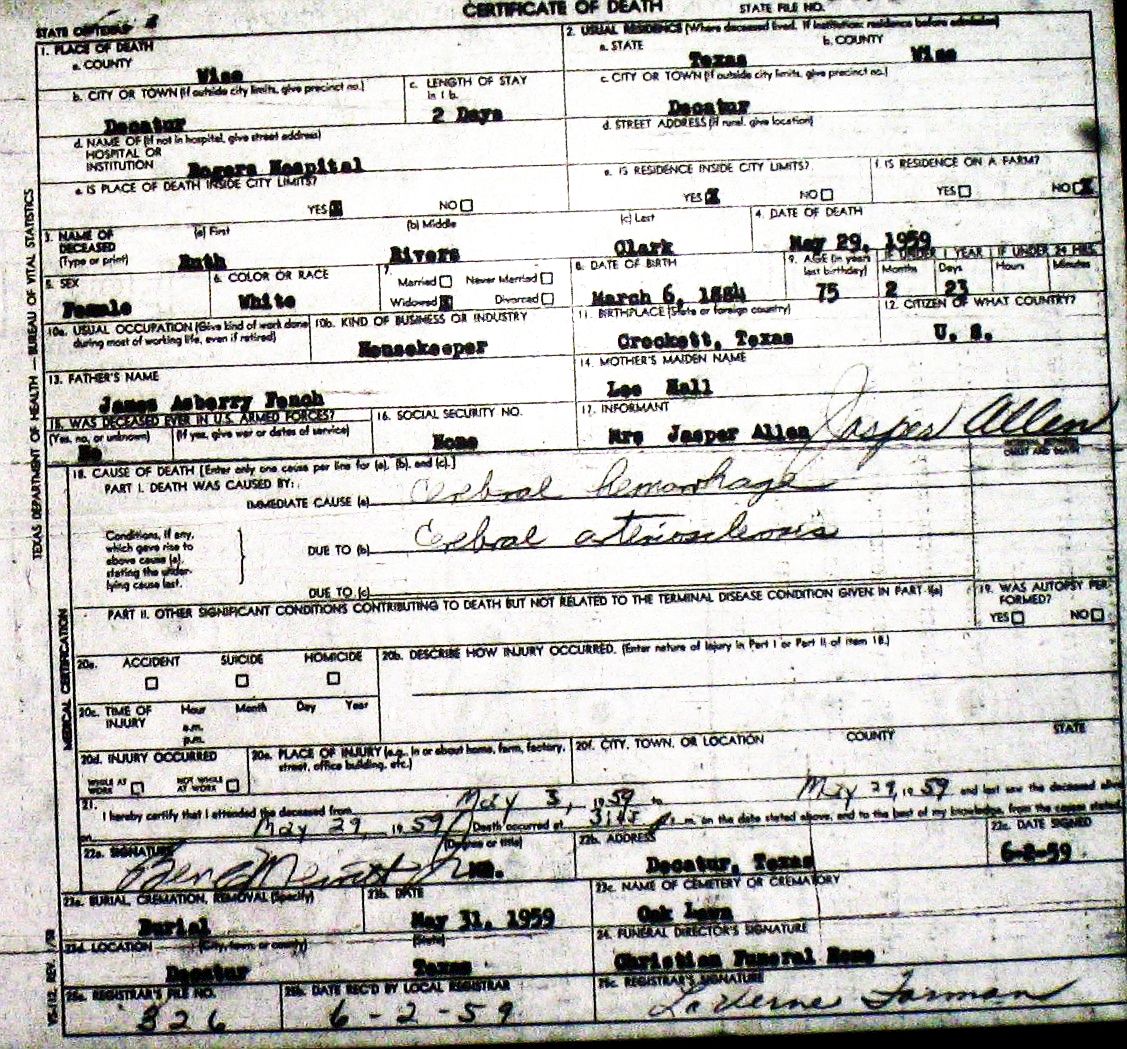 CERTIFICATE OF DEATH STATE FILE NO.
STATE OF TEXAS
1. PLACE OF DEATH
a. COUNTY
Wise
2. USUAL RESIDENCE (Where deceased lived. If institution: residence before admission)
a. STATE
Texas
b. COUNTY
Wise
b. CITY OR TOWN (If outside city limits, give precinct no.)
Decatur
c. LENGTH OF STAY in 1 b.
2 Days
c. CITY OR TOWN (If outside city limits, give precinct no.)
Decatur
d. NAME OF (If not in hospital, give street address)
HOSPITAL OR
INSTITUTION Rogers Hospital
d. STREET ADDRESS (If rural, give location)
e. IS PLACE OF DEATH INSIDE CITY LIMITS?
YES X NO
e. IS RESIDENCE INSIDE CITY LIMITS?
YES X NO
f. IS RESIDENCE ON A FARM?
YES NO X
3. NAME OF DECEASED (Type or print)
(a) First (b) Middle (c) Last
Ruth Rivers Clark
4. DATE OF DEATH
May 29, 1959
5. SEX
Female
6. COLOR OR RACE
White
7.
Married Never Married
Widowed X Divorced
8. DATE OF BIRTH
March 6, 1884
9. AGE (In years last birthday)
75
IF UNDER 1 YEAR IF UNDER 24 HRS.
Months Days Hours Minutes
2 23
10a. USUAL OCCUPATION (Give kind of work done during most of working life, even if retired)
10b. KIND OF BUSINESS OR INDUSTRY
Housekeeper
11. BIRTHPLACE (State or foreign country)
Crockett, Texas
12. CITIZEN OF WHAT COUNTRY?
U. S.
13. FATHER'S NAME
James Asberry
14. MOTHER'S MAIDEN NAME
Lee Hall
15. WAS DECEASED EVER IN U.S. ARMED FORCES?
(Yes, no, or unknown) (If yes, give war or dates of service)
No
16. SOCIAL SECURITY NO.
None
17. INFORMANT
Mrs Jasper Allen Jasper Allen
18. CAUSE OF DEATH [Enter only one cause per line for (a), (b), and (c).]
INTERVAL BETWEEN
ONSET AND DEATH
PART I. DEATH WAS CAUSED BY:
IMMEDIATE CAUSE (a) Cerebral hemorrhage
Conditions, if any, which gave rise to above cause (a), stating the underlying cause last.
DUE TO (b) Cerebral arteriosclerosis
DUE TO (c)
PART II. OTHER SIGNIFICANT CONDITIONS CONTRIBUTING TO DEATH BUT NOT RELATED TO THE TERMINAL DISEASE CONDITION GIVEN IN PART I(a)
19. WAS AUTOPSY PERFORMED?
YES NO
20a. ACCIDENT SUICIDE HOMICIDE
20b. DESCRIBE HOW INJURY OCCURRED. (Enter nature of injury in Part I or Part II of item 18.)
20c. TIME OF INJURY
Hour Month Day Year
a.m.
p.m.
20d. INJURY OCCURRED
WHILE AT WORK NOT WHILE AT WORK
20e. PLACE OF INJURY (e.g., in or about home, farm, factory, street, office building, etc.)
20f. CITY, TOWN, OR LOCATION COUNTY STATE
21.
I hereby certify that I attended the deceased from May 3, 1959 to May 29, 1959 and last saw the deceased alive
on May 29, 1959. Death occurred at m. on the date stated above, and to the best of my knowledge, from the causes stated.
22a. SIGNATURE (Degree or title)
MD.
22b. ADDRESS
Decatur, Texas
22c. DATE SIGNED
6-2-59
23a. BURIAL, CREMATION, REMOVAL (Specify)
Burial
23b. DATE
May 31, 1959
23c. NAME OF CEMETERY OR CREMATORY
Oak Lawn
23d. LOCATION (City, town, or county) (State)
Decatur Texas
24. FUNERAL DIRECTOR'S SIGNATURE
Christian Funeral Home
25a. REGISTRAR'S FILE NO.
326
25b. DATE REC'D BY LOCAL REGISTRAR
6-2-59
25c. REGISTRAR'S SIGNATURE
LaVerne Forman
TEXAS DEPARTMENT OF HEALTH — BUREAU OF VITAL STATISTICS
MEDICAL CERTIFICATION